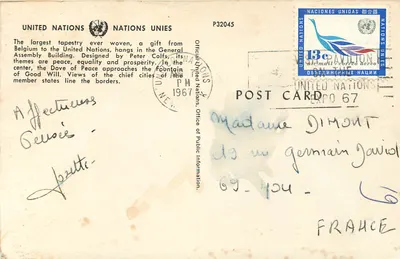 UNITED NATIONS
NATIONS UNIES
P32045
The largest tapestry ever woven, a gift from
Belgium to the United Nations, hangs in the General
Assembly Building. Designed by Peter Colfs, its
themes are peace, equality and prosperity. In the
center, the Dove of Peace approaches the fountain
of Good Will. Views of the chief cities of the
member states line the borders.
Affectueuses
Pensées
Official Card of United Nations, Office of Public Information
NATIONS
PM
1967
NATIONS UNIES
UNITED NATIONS
13c
ОБЪЕДИНЕННЫЕ НАЦИИ
PAVILION
UNITED NATIONS
EXPO 67
POST CARD
Madame DIMONT
13 rue Germain David
69 -
FRANCE